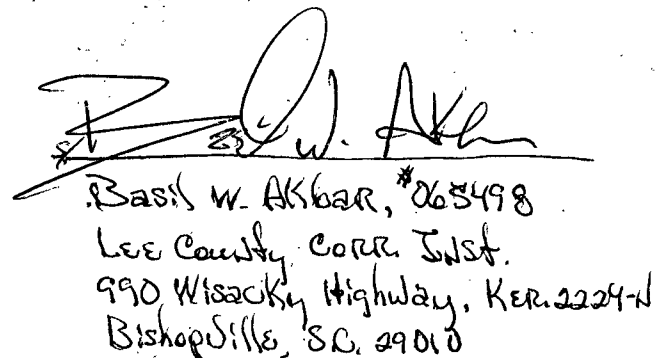 Basil W. Akbar
Basil W. Akbar, #065498
Lee County Corr. Inst.
990 Wisacky Highway, Ker. 2224-N
Bishopville, SC. 29010